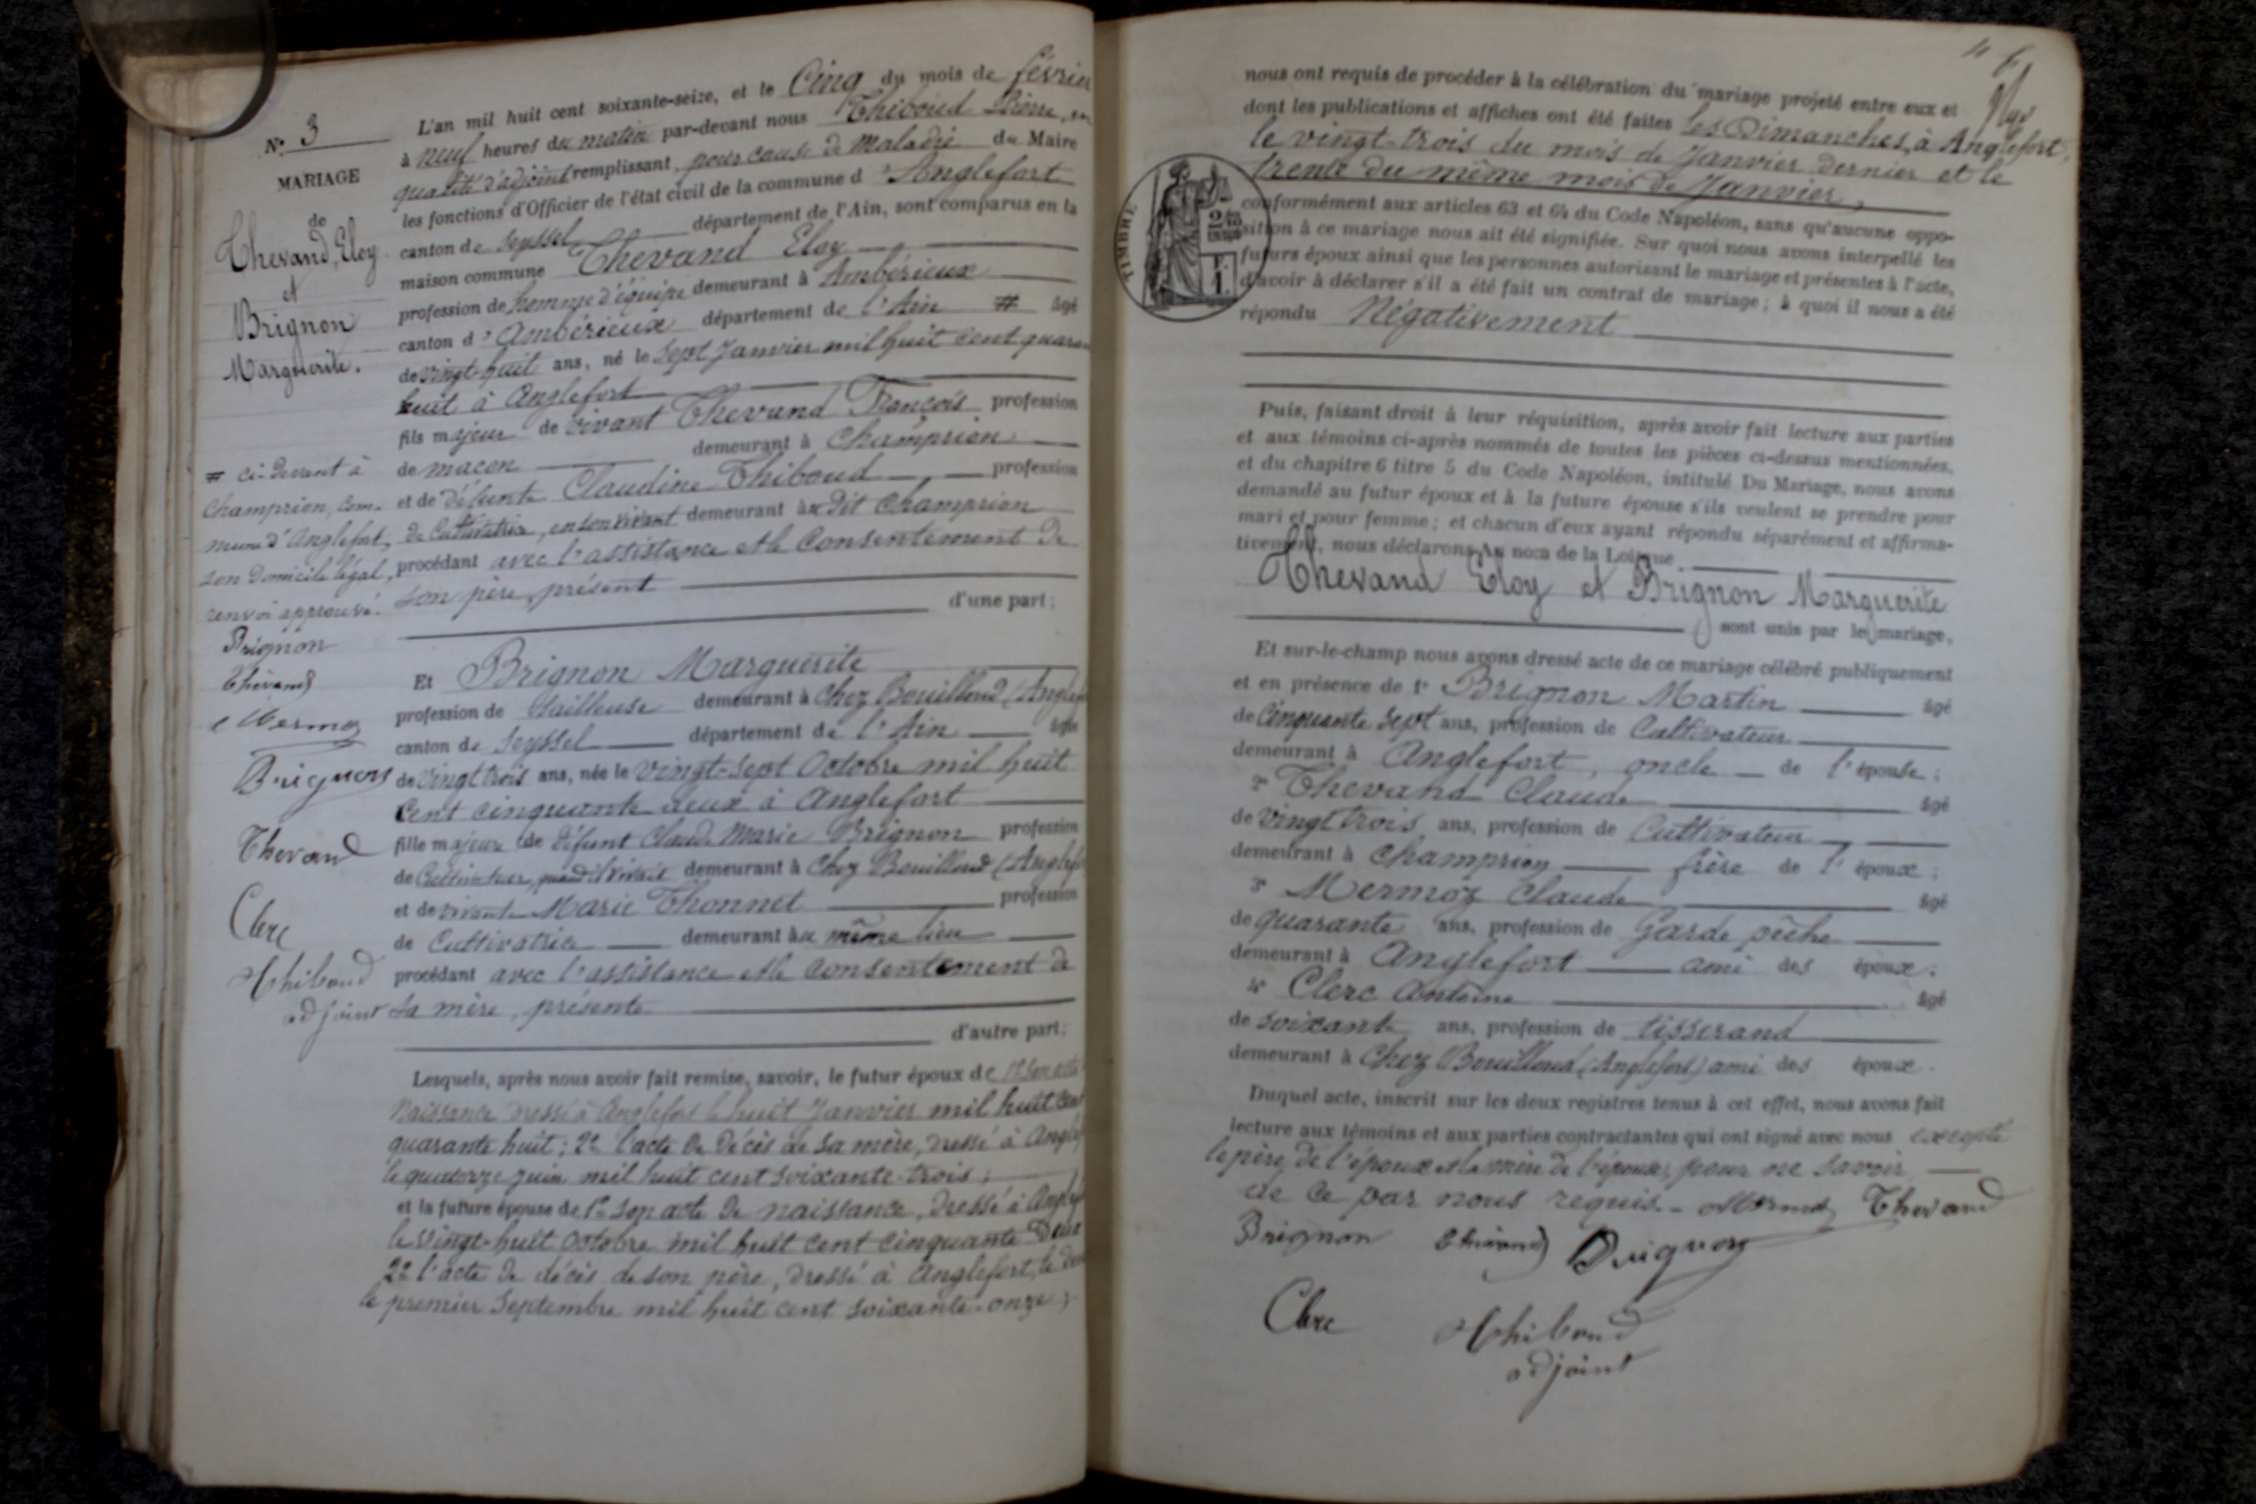 N° 3
MARIAGE
de
Thevand, Eloy
et
Brignon
Marguerite.
L'an mil huit cent soixante-seize, et le Cinq du mois de février
à neuf heures du matin par-devant nous Thiboud Pierre, en
qualité d'adjoint remplissant, pour cause de maladie du Maire
les fonctions d'Officier de l'état civil de la commune d'Anglefort
canton de Seyssel département de l'Ain, sont comparus en la
maison commune Thevand Eloy
profession de homme d'équipe demeurant à Ambérieux
canton d'Ambérieux département de l'Ain # âgé
de vingt-huit ans, né le sept Janvier mil huit cent quaran
huit à Anglefort
fils majeur de vivant Thevand François profession
de maçon demeurant à Champrion
et de défunte Claudine Thiboud profession
de Cultivatrice, en son vivant demeurant au dit Champrion
procédant avec l'assistance et le Consentement de
son père, présent
d'une part;
# ci-devant à
Champrion, com-
mune d'Anglefort,
son domicile légal,
renvoi approuvé.
Brignon
Thevand
Mermoz
Brignon
Thevand
Clerc
Thiboud
adjoint
Et Brignon Marguerite
profession de tailleuse demeurant à Chez Bouilloud (Anglef
canton de Seyssel département de l'Ain âgée
de vingt trois ans, née le vingt-sept Octobre mil huit
cent cinquante deux à Anglefort
fille majeure de défunt Claude Marie Brignon profession
de Cultivateur, quand il vivait demeurant à Chez Bouilloud (Anglef
et de vivante Marie Thonnet profession
de Cultivatrice demeurant au même lieu
procédant avec l'assistance et le consentement de
sa mère, présente
d'autre part;
Lesquels, après nous avoir fait remise, savoir, le futur époux de 1° Son acte
Naissance dressé à Anglefort le huit Janvier mil huit cent
quarante huit; 2° l'acte de décès de sa mère, dressé à Anglef
le quatorze juin mil huit cent soixante-trois;
et la future épouse de 1° Son acte de naissance, dressé à Anglef
le vingt-huit Octobre mil huit cent cinquante Deux
2° l'acte de décès de son père, dressé à Anglefort,
le premier Septembre mil huit cent soixante-onze;
nous ont requis de procéder à la célébration du mariage projeté entre eux et
dont les publications et affiches ont été faites les Dimanches, à Anglefort,
le vingt-trois du mois de Janvier dernier et le
trente du même mois de Janvier,
TIMBRE
conformément aux articles 63 et 64 du Code Napoléon, sans qu'aucune oppo-
sition à ce mariage nous ait été signifiée. Sur quoi nous avons interpellé les
futurs époux ainsi que les personnes autorisant le mariage et présentes à l'acte,
d'avoir à déclarer s'il a été fait un contrat de mariage; à quoi il nous a été
répondu Négativement
Puis, faisant droit à leur réquisition, après avoir fait lecture aux parties
et aux témoins ci-après nommés de toutes les pièces ci-dessus mentionnées,
et du chapitre 6 titre 5 du Code Napoléon, intitulé Du Mariage, nous avons
demandé au futur époux et à la future épouse s'ils veulent se prendre pour
mari et pour femme; et chacun d'eux ayant répondu séparément et affirma-
tivement, nous déclarons au nom de la Loi que
Thevand Eloy et Brignon Marguerite
sont unis par le mariage,
Et sur-le-champ nous avons dressé acte de ce mariage célébré publiquement
et en présence de 1° Brignon Martin âgé
de Cinquante sept ans, profession de Cultivateur
demeurant à Anglefort, oncle de l'épouse;
2° Thevand Claude âgé
de Vingt trois ans, profession de Cultivateur
demeurant à Champrion frère de l'époux;
3° Mermoz Claude âgé
de quarante ans, profession de Garde pêche
demeurant à Anglefort ami des époux;
4° Clerc Antoine âgé
de soixante ans, profession de tisserand
demeurant à Chez Bouilloud (Anglefort) ami des époux.
Duquel acte, inscrit sur les deux registres tenus à cet effet, nous avons fait
lecture aux témoins et aux parties contractantes qui ont signé avec nous excepté
le père de l'époux et la mère de l'épouse, pour ne savoir
de ce par nous requis. Mermoz Thevand
Brignon Thevand Brignon
Clerc Thiboud
adjoint